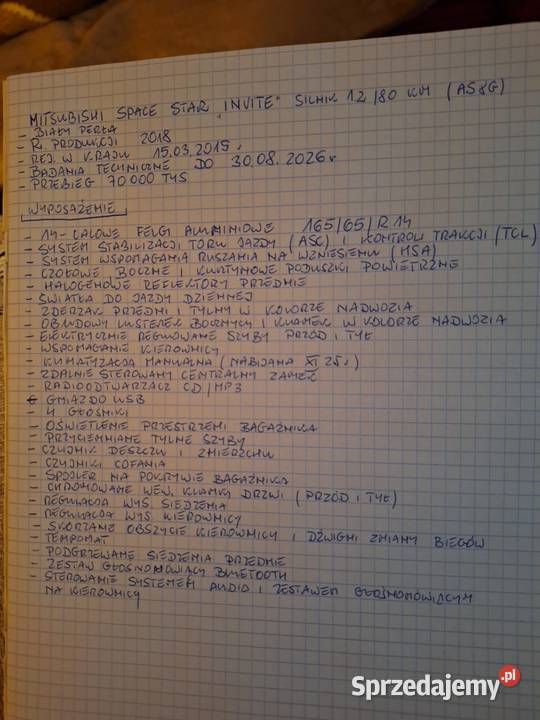 MITSUBISHI SPACE STAR „INVITE" SILNIK 1.2/80 KM (AS&G)
- BIAŁY PERŁA
- R. PRODUKCJI 2018
- REJ. W KRAJU 15.03.2019r
- BADANIA TECHNICZNE DO 30.08.2026r
- PRZEBIEG 70 000 TYS
WYPOSAŻENIE
- 14-CALOWE FELGI ALUMINIOWE 165/65/R14
- SYSTEM STABILIZACJI TORU JAZDY (ASC) I KONTROLI TRAKCJI (TCL)
- SYSTEM WSPOMAGANIA RUSZANIA NA WZNIESIENIU (HSA)
- CZOŁOWE BOCZNE I KURTYNOWE PODUSZKI POWIETRZNE
- HALOGENOWE REFLEKTORY PRZEDNIE
- ŚWIATŁA DO JAZDY DZIENNEJ
- ZDERZAK PRZEDNI I TYLNY W KOLORZE NADWOZIA
- OBUDOWY LUSTEREK BOCZNYCH I KLAMEK W KOLORZE NADWOZIA
- ELEKTRYCZNIE REGULOWANE SZYBY PRZÓD I TYŁ
- WSPOMAGANIE KIEROWNICY
- KLIMATYZACJA MANUALNA (NABIJANA XI 25r)
- ZDALNIE STEROWANY CENTRALNY ZAMEK
- RADIOODTWARZACZ CD/MP3
- GNIAZDO USB
- 4 GŁOŚNIKI
- OŚWIETLENIE PRZESTRZENI BAGAŻNIKA
- PRZYCIEMNIANE TYLNE SZYBY
- CZUJNIK DESZCZU I ZMIERZCHU
- CZUJNIKI COFANIA
- SPOJLER NA POKRYWIE BAGAŻNIKA
- CHROMOWANE WEW. KLAMKI DRZWI (PRZÓD I TYŁ)
- REGULACJA WYS. SIEDZENIA
- REGULACJA WYS KIEROWNICY
- SKÓRZANE OBSZYCIE KIEROWNICY I DŹWIGNI ZMIANY BIEGÓW
- TEMPOMAT
- PODGRZEWANE SIEDZENIA PRZEDNIE
- ZESTAW GŁOŚNOMÓWIĄCY BLUETOOTH
- STEROWANIE SYSTEMEM AUDIO I ZESTAWEM GŁOŚNOMÓWIĄCYM
NA KIEROWNICY
Sprzedajemy.pl